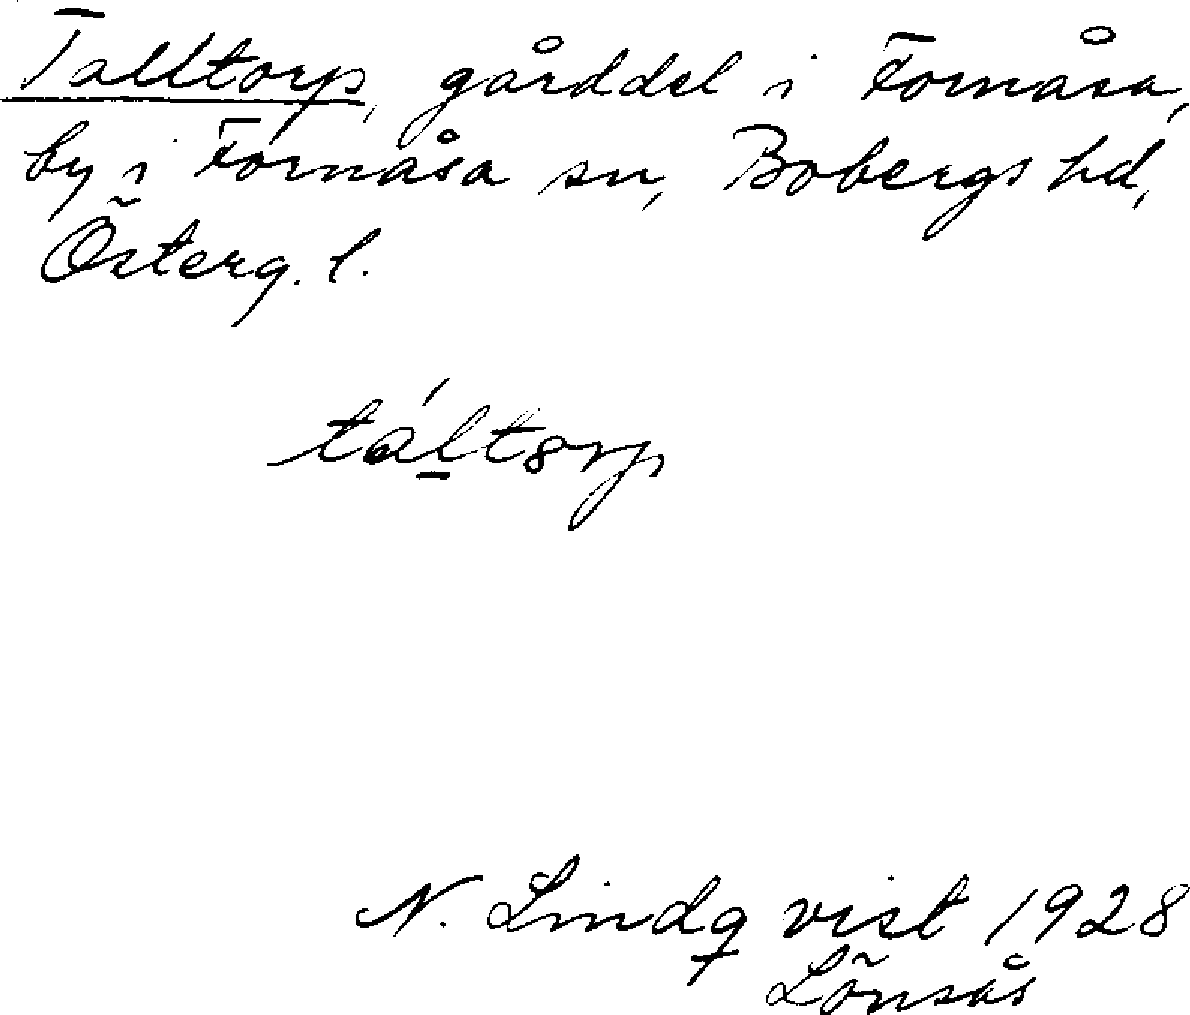 Talltorp, gårddel i Fornåsa,
by i Fornåsa sn, Bobergs hd,
Österg. l.
tál̲tȣrp
N. Lindqvist 1928
Lönsås